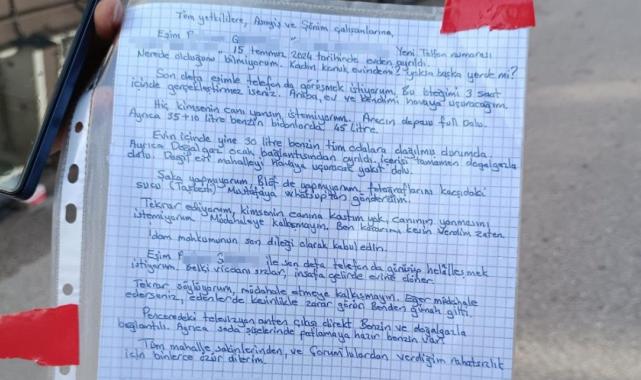 Tüm yetkililere, Asayiş ve Şönim çalışanlarına,
Eşim P G
" 15 temmuz 2024 tarihinde evden ayrıldı. Yeni Telefon numarası
Nerede olduğunu bilmiyorum. Kadın konuk evindemi? yoksa başka yerde mi?
Son defa eşimle telefon da görüşmek istiyorum. Bu isteğimi 3 saat
içinde gerçekleştirmez iseniz. Araba, ev ve kendimi havaya uçuracağım.
Hiç kimsenin canı yansın istemiyorum. Aracın deposu full dolu.
Ayrıca 35+10 litre benzin bidonlarda 45 litre.
Evin içinde yine 30 litre benzin tüm odalara dağılmış durumda.
Ayrıca Doğal gaz ocak bağlantısından ayrıldı. içerisi tamamen doğalgazla
dolu. Değil evi mahalleyi havaya uçuracak yakıt dolu.
Şaka yapmıyorum, Blöf de yapmıyorum, fotoğraflarını kaçıdaki
sucu (Taşbesti) Mustafaya whatsuptan gönderdim.
Tekrar ediyorum, kimsenin canına kastım yok, canının yanmasını
istemiyorum. Müdahaleye kalkışmayın. Ben kararımı kesin verdim zaten.
İdam mahkumunun son dileği olarak kabul edin.
Eşim P G ile son defa telefon da görüşüp helalleşmek
istiyorum. Belki vicdanı sızlar, insafa gelirde evine döner.
Tekrar, söylüyorum, müdahale etmeye kalkışmayın. Eğer müdahale
ederseniz, edenler de kesinlikle zarar görür. Benden günah gitti.
Penceredeki televizyon anten çıkışı direkt Benzin ve doğalgazla
bağlantılı. Ayrıca soda şişelerinde patlamaya hazır benzin var.
Tüm mahalle sakinlerinden, ve Çorumlulardan verdiğim rahatsızlık
için binlerce özür dilerim.